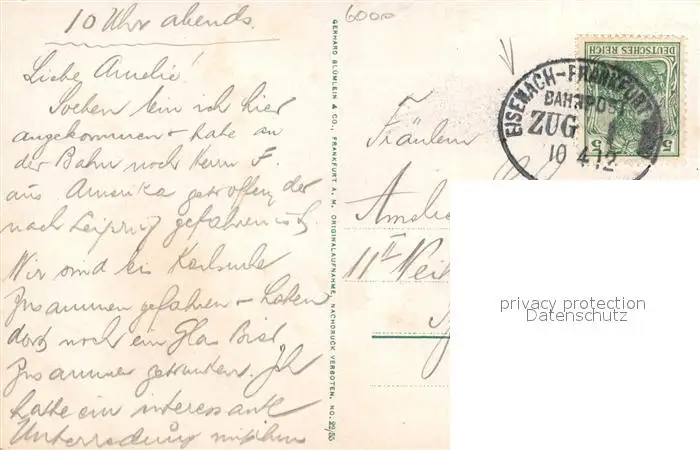 10 Uhr abends.
Liebe Amelie!
Soeben bin ich hier
angekommen + habe an
der Bahn noch Herrn F.
aus Amerika getroffen, der
nach Leipzig gefahren ist.
Wir sind bis Karlsruhe
zusammen gefahren + haben
dort noch ein Glas Bier
zusammen getrunken. Ich
hatte ein interessante
Unterredung mit ihm
GERHARD BLÜMLEIN & CO., FRANKFURT A. M. ORIGINALAUFNAHME, NACHDRUCK VERBOTEN. NO. 29/55
6000
DEUTSCHES REICH
5 5
EISENACH-FRANKFURT
BAHNPOS
ZUG
10 4 12
Fräulein
Amelie
11
privacy protection
Datenschutz